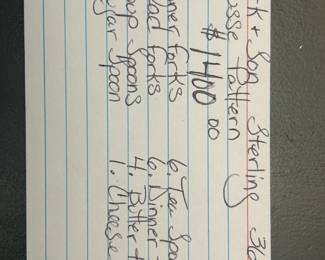 k + Son Sterling 36
sse Pattern
$1400.00
ner forks 6. Tea Spo
lad forks 6. Dinner
oup Spoons 4. Butter
gar Spoon 1. Cheese